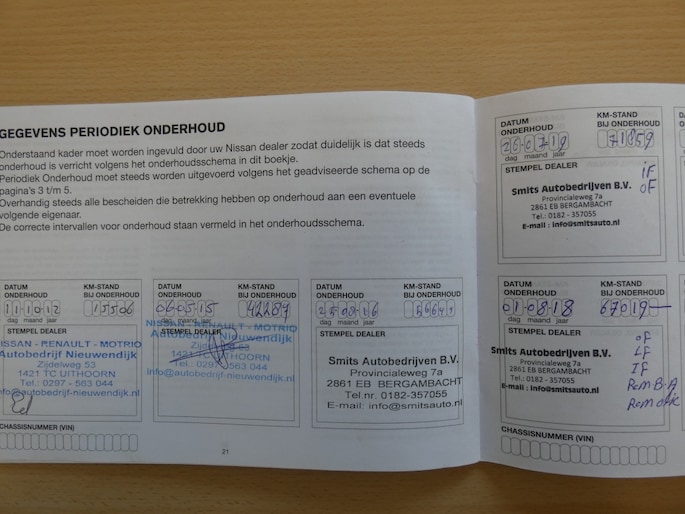 GEGEVENS PERIODIEK ONDERHOUD
Onderstaand kader moet worden ingevuld door uw Nissan dealer zodat duidelijk is dat steeds
onderhoud is verricht volgens het onderhoudsschema in dit boekje.
Periodiek Onderhoud moet steeds worden uitgevoerd volgens het geadviseerde schema op de
pagina's 3 t/m 5.
Overhandig steeds alle bescheiden die betrekking hebben op onderhoud aan een eventuele
volgende eigenaar.
De correcte intervallen voor onderhoud staan vermeld in het onderhoudsschema.
DATUM ONDERHOUD
KM-STAND BIJ ONDERHOUD
111012
15506
dag maand jaar
STEMPEL DEALER
ISSAN - RENAULT - MOTRIO
Autobedrijf Nieuwendijk
Zijdelweg 53
1421 TC UITHOORN
Tel.: 0297 - 563 044
nfo@autobedrijf-nieuwendijk.nl
CHASSISNUMMER (VIN)
DATUM ONDERHOUD
KM-STAND BIJ ONDERHOUD
060515
42287
dag maand jaar
STEMPEL DEALER
NISSAN - RENAULT - MOTRIO
Autobedrijf Nieuwendijk
Zijdelweg 53
1421 TC UITHOORN
Tel.: 0297 - 563 044
info@autobedrijf-nieuwendijk.nl
DATUM ONDERHOUD
KM-STAND BIJ ONDERHOUD
dag maand jaar
STEMPEL DEALER
Smits Autobedrijven B.V.
Provincialeweg 7a
2861 EB BERGAMBACHT
Tel.nr. 0182-357055
E-mail: info@smitsauto.nl
21
DATUM ONDERHOUD
KM-STAND BIJ ONDERHOUD
260719
71859
dag maand jaar
STEMPEL DEALER
iF
oF
Smits Autobedrijven B.V.
Provincialeweg 7a
2861 EB BERGAMBACHT
Tel.: 0182 - 357055
E-mail : info@smitsauto.nl
DATUM ONDERHOUD
KM-STAND BIJ ONDERHOUD
010818
67019
dag maand jaar
STEMPEL DEALER
oF
LF
IF
Smits Autobedrijven B.V.
Provincialeweg 7a
2861 EB BERGAMBACHT
Tel.: 0182 - 357055
E-mail : info@smitsauto.nl
CHASSISNUMMER (VIN)